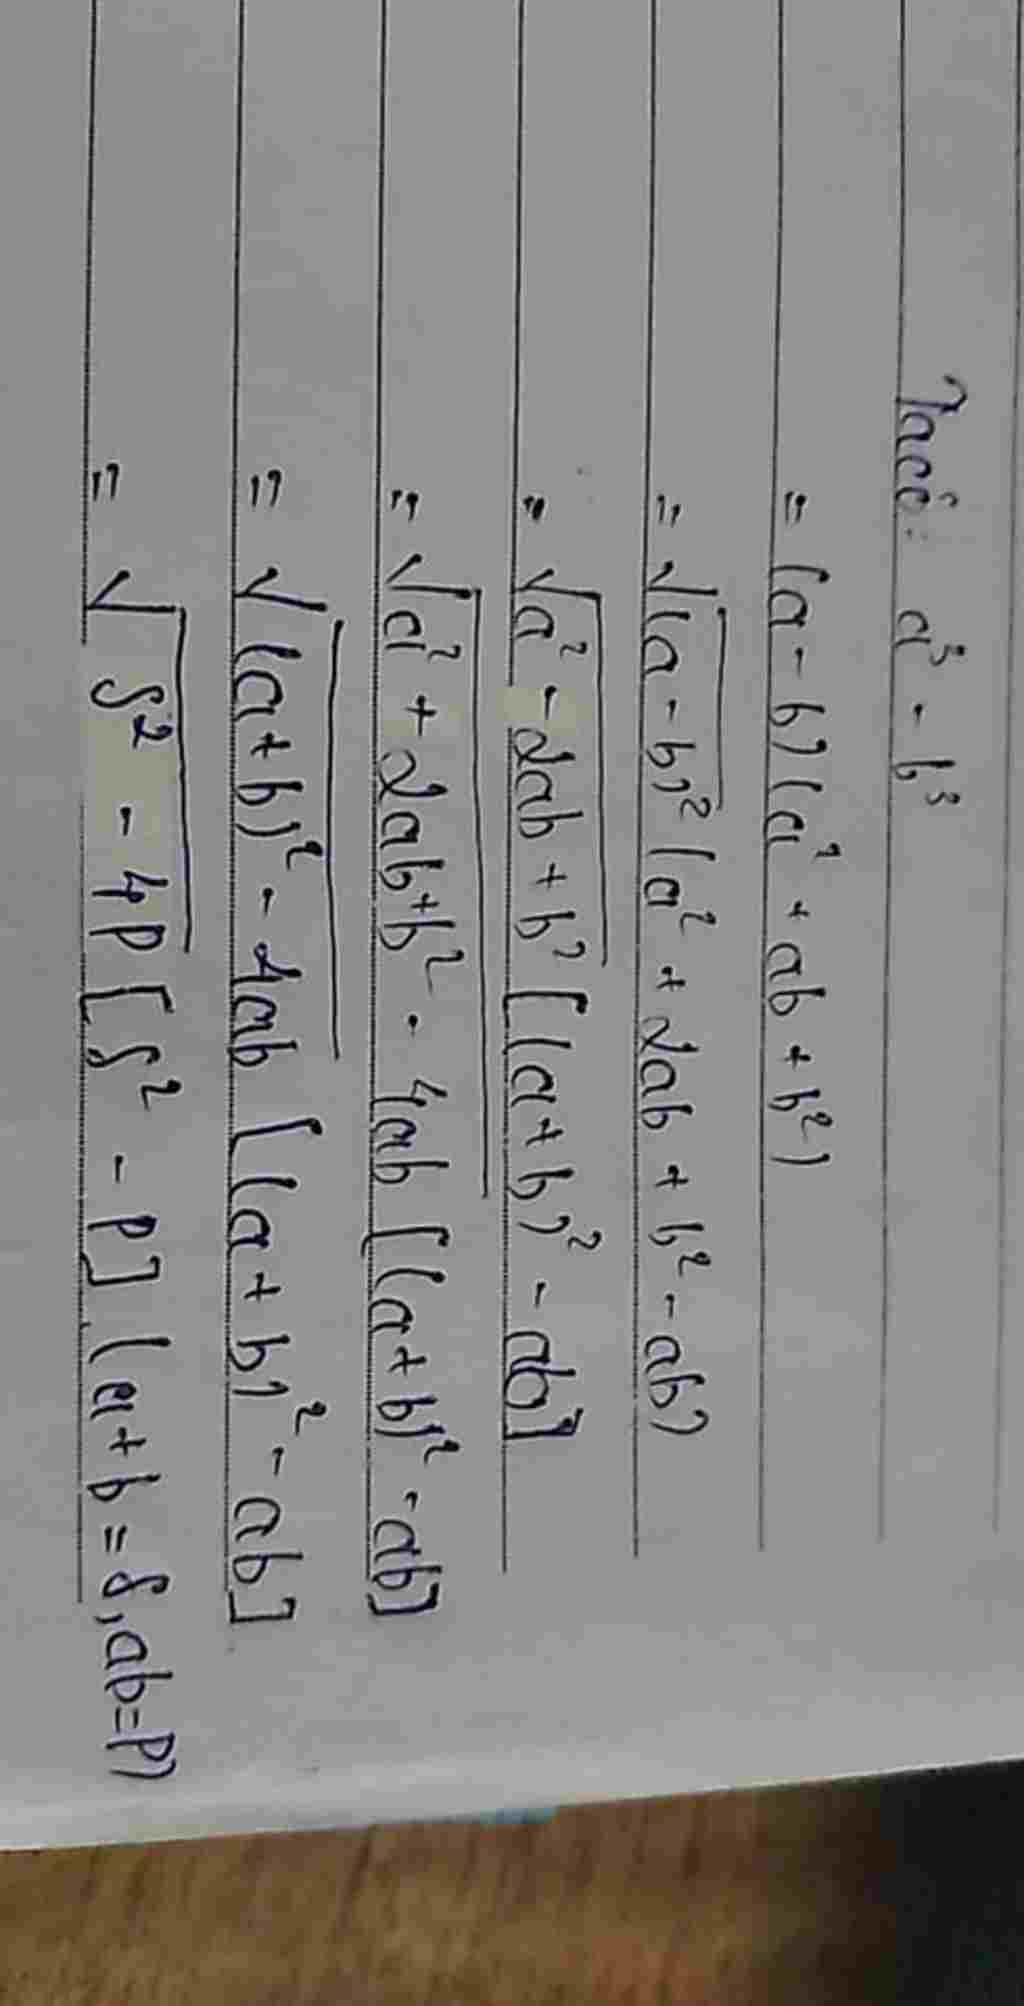 Ta có: a³ - b³
= (a - b)(a² + ab + b²)
= √(a - b)² (a² + 2ab + b² - ab)
= √a² - 2ab + b² [(a + b)² - ab]
= √a² + 2ab + b² - 4ab [(a + b)² - ab]
= √(a + b)² - 4ab [(a + b)² - ab]
= √S² - 4P [S² - P] (a + b = S, ab = P)